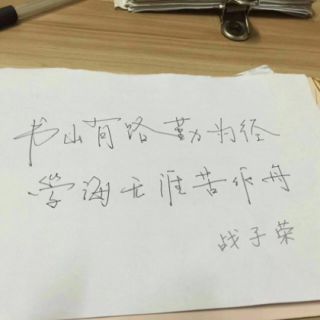 书山有路勤为径
学海无涯苦作舟
战子荣